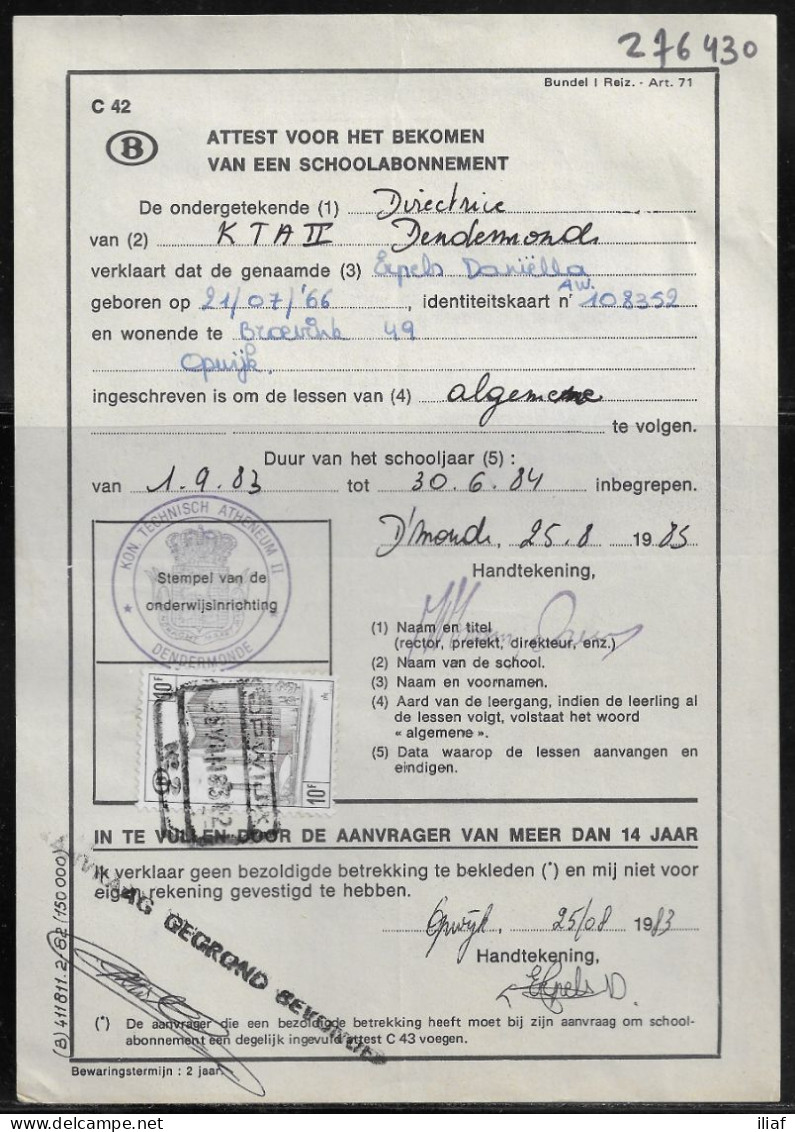 276430
Bundel I Reiz. - Art. 71
C 42
B
ATTEST VOOR HET BEKOMEN
VAN EEN SCHOOLABONNEMENT
De ondergetekende (1) Directrice
van (2) KTA II Dendermonde
verklaart dat de genaamde (3) Expels Daniëlla
geboren op 21/07/'66, identiteitskaart nr AW. 108352
en wonende te 49
Opwijk.
ingeschreven is om de lessen van (4) algemene
te volgen.
Duur van het schooljaar (5) :
van 1.9.83 tot 30.6.84 inbegrepen.
KON TECHNISCH ATHENEUM II
DENDERMONDE
Stempel van de
onderwijsinrichting
D'monde, 25.8 1983
Handtekening,
(1) Naam en titel
(rector, prefekt, direkteur, enz.)
(2) Naam van de school.
(3) Naam en voornamen.
(4) Aard van de leergang, indien de leerling al
de lessen volgt, volstaat het woord
« algemene ».
(5) Data waarop de lessen aanvangen en
eindigen.
10F
10F
IN TE VULLEN DOOR DE AANVRAGER VAN MEER DAN 14 JAAR
Ik verklaar geen bezoldigde betrekking te bekleden (*) en mij niet voor
eigen rekening gevestigd te hebben.
Opwijk, 25/08 1983
Handtekening,
Expels D.
AANVRAAG GEGROND BEVONDEN
(*) De aanvrager die een bezoldigde betrekking heeft moet bij zijn aanvraag om school-
abonnement een degelijk ingevuld attest C 43 voegen.
Bewaringstermijn : 2 jaar.
(B) 411811.2/82 (150 000)
iliaf